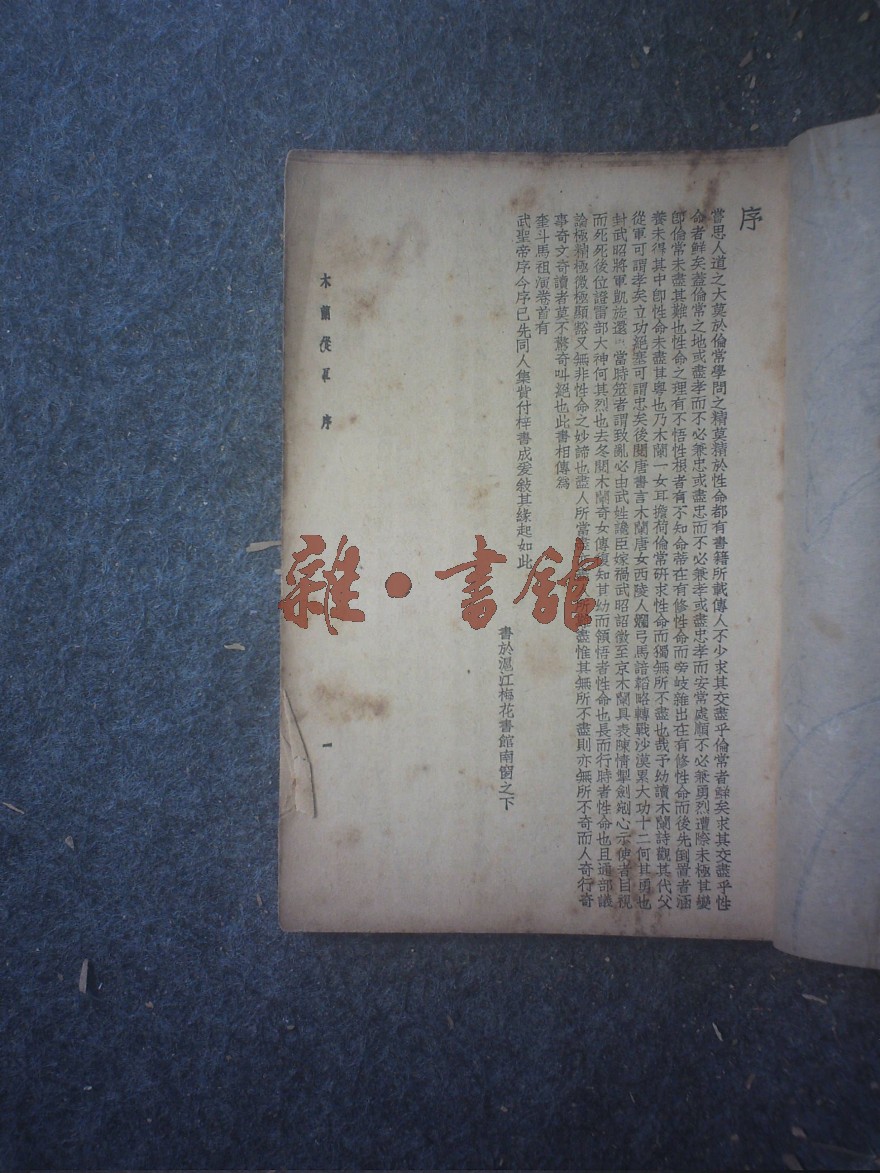 序
嘗思人道之大莫於倫常學問之精莫精於性命都有書籍所載傳人不少求其交盡乎倫常者鮮矣求其交盡乎性
命者鮮矣蓋倫常之地或盡孝而不必兼忠或盡忠而不必兼孝或盡忠孝而安常處順不必兼勇烈遭際未極其變
卽倫常未盡其難也性命之理有不悟性根者有不知命蒂在有修性命而旁岐雜出在有修性命而後先倒置者涵
養未得其中卽性命未盡其粤也乃木蘭一女耳擔荷倫常硏求性命而獨無所不盡也哉予幼讀木蘭詩觀其代父
從軍可謂孝矣立功絕塞可謂忠矣後閱唐書言木蘭唐女西陵人嫺弓馬諳韜略轉戰沙漠累大功十二何其勇也
封武昭將軍凱旋還 當時筮者謂致亂必由武姓讒臣嫁禍武昭詔徵至京木蘭具表陳情掣劍剜心示使者目視
而死死後位證雷部大神何其烈也去冬閱木蘭奇女傳復知其幼而領悟者性命也長而行時者性命也且通部議
論極精極微極顯豁又無非性命之妙諦也盡人所當盡 所 盡惟其無所不盡則亦無所不奇而人奇行奇
事奇文奇讀者莫不驚奇叫絕也此書相傳爲
奎斗馬祖演卷首有
武聖帝序今序已先同人集貲付梓書成爰敍其緣起如此
書於滬江梅花書館南窗之下
木蘭從軍 序
一
雜·書館